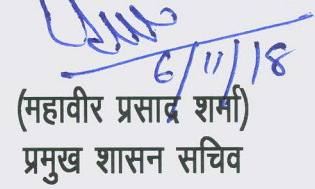 6/11/18
(महावीर प्रसाद शर्मा)
प्रमुख शासन सचिव